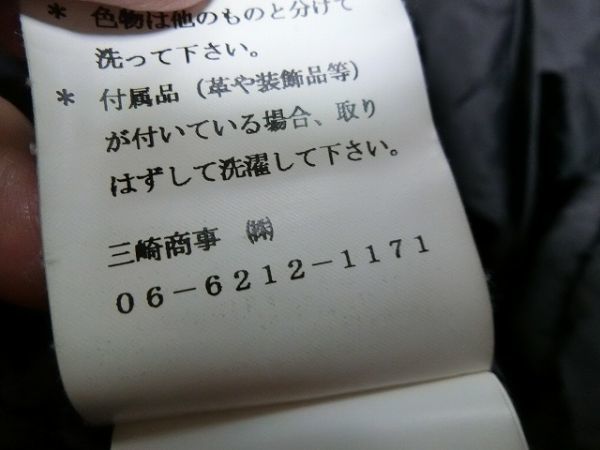 * 色物は他のものと分けて
洗って下さい。
* 付属品（革や装飾品等）
が付いている場合、取り
はずして洗濯して下さい。
三崎商事 ㈱
06-6212-1171